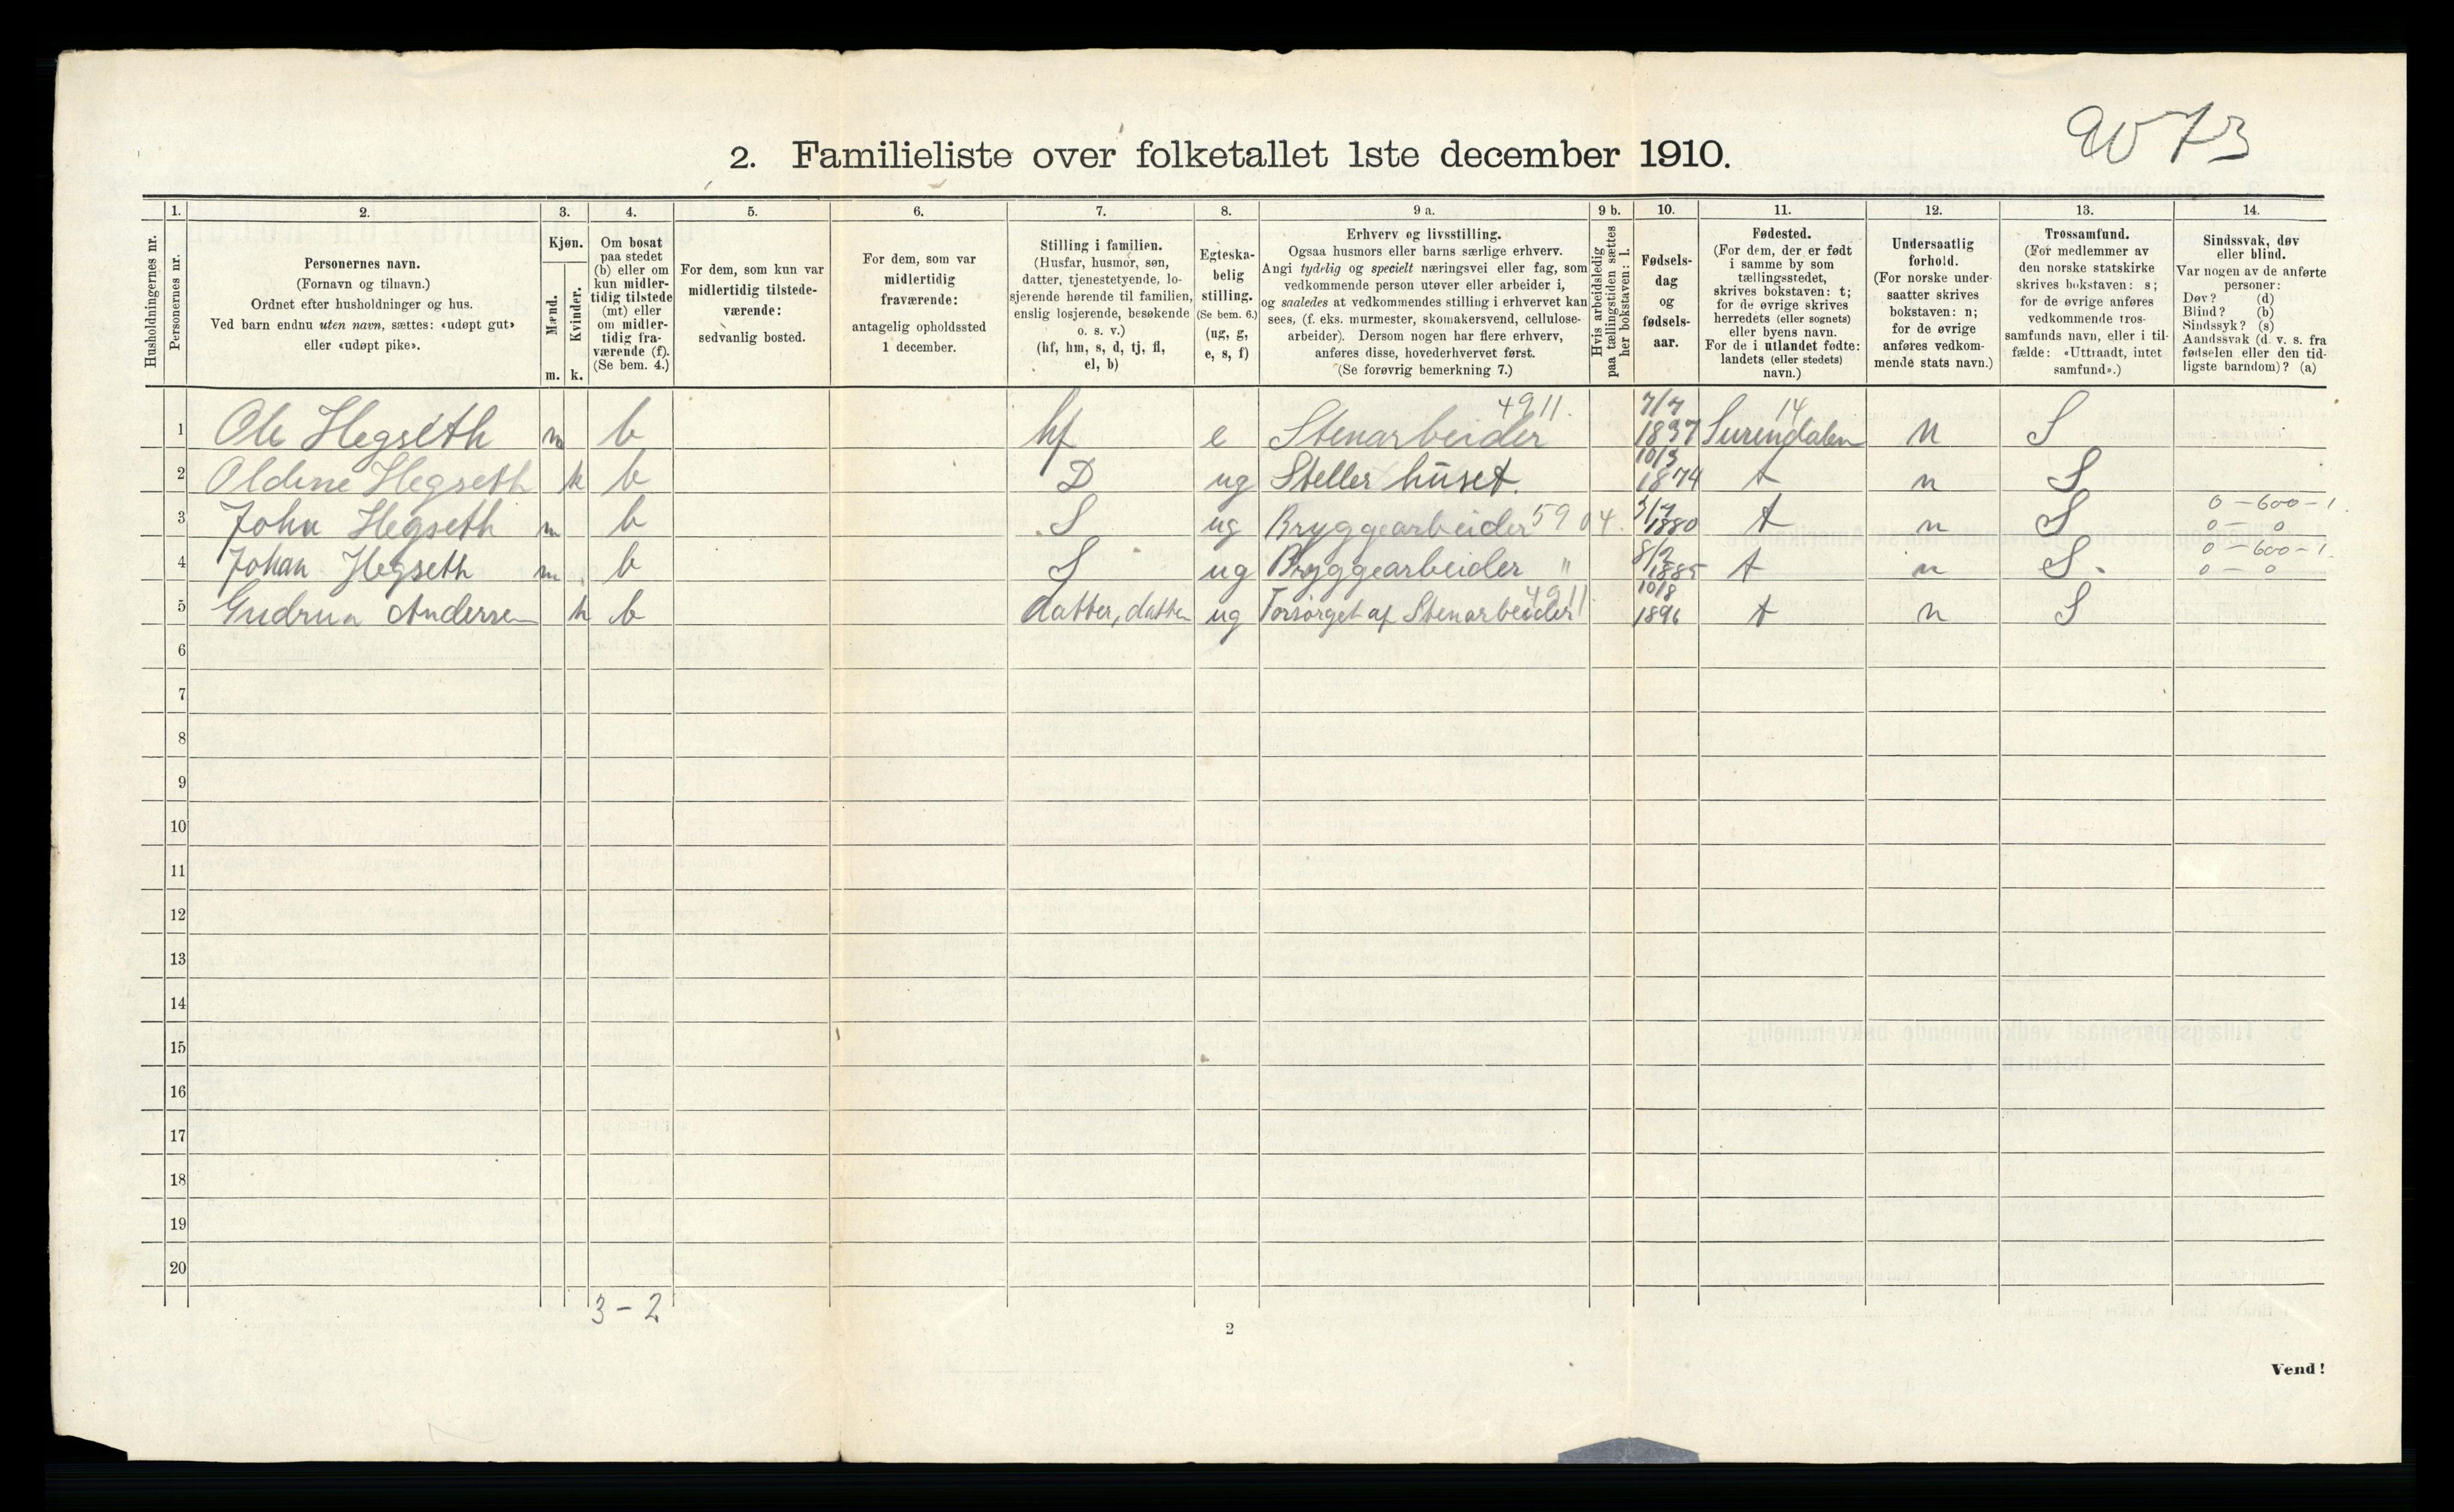 2. Familieliste over folketallet 1ste december 1910.
Husholdningernes nr.
1.
Personernes nr.
2.
Personernes navn.
(Fornavn og tilnavn.)
Ordnet efter husholdninger og hus.
Ved barn endnu uten navn, sættes: «udøpt gut»
eller «udøpt pike».
3.
Kjøn.
Mænd.
Kvinder.
m. k.
4.
Om bosat
paa stedet
(b) eller om
kun midler-
tidig tilstede
(mt) eller
om midler-
tidig fra-
værende (f).
(Se bem. 4.)
5.
For dem, som kun var
midlertidig tilstede-
værende:
sedvanlig bosted.
6.
For dem, som var
midlertidig
fraværende:
antagelig opholdssted
1 december.
7.
Stilling i familien.
(Husfar, husmor, søn,
datter, tjenestetyende, lo-
sjerende hørende til familien,
enslig losjerende, besøkende
o. s. v.)
(hf, hm, s, d, tj, fl,
el, b)
8.
Egteska-
belig
stilling.
(Se bem. 6.)
(ug, g,
e, s, f)
9 a.
Erhverv og livsstilling.
Ogsaa husmors eller barns særlige erhverv.
Angi tydelig og specielt næringsvei eller fag, som
vedkommende person utøver eller arbeider i,
og saaledes at vedkommendes stilling i erhvervet kan
sees, (f. eks. murmester, skomakersvend, cellulose-
arbeider). Dersom nogen har flere erhverv,
anføres disse, hovederhvervet først.
(Se forøvrig bemerkning 7.)
9 b.
Hvis arbeidsledig
paa tællingstiden sættes
her bokstaven: l.
10.
Fødsels-
dag
og
fødsels-
aar.
11.
Fødested.
(For dem, der er født
i samme by som
tællingsstedet,
skrives bokstaven: t;
for de øvrige skrives
herredets (eller sognets)
eller byens navn.
For de i utlandet fødte:
landets (eller stedets)
navn.)
12.
Undersaatlig
forhold.
(For norske under-
saatter skrives
bokstaven: n;
for de øvrige
anføres vedkom-
mende stats navn.)
13.
Trossamfund.
(For medlemmer av
den norske statskirke
skrives bokstaven: s;
for de øvrige anføres
vedkommende tros-
samfunds navn, eller i til-
fælde: «Uttraadt, intet
samfund».)
14.
Sindssvak, døv
eller blind.
Var nogen av de anførte
personer:
Døv? (d)
Blind? (b)
Sindssyk? (s)
Aandssvak (d. v. s. fra
fødselen eller den tid-
ligste barndom)? (a)
4911. 7/7 14
1 Ole Hegseth m b hf e Stenarbeider 1837 Surendalen n S
10/3
2 Oldine Hegseth k b D ug Steller huset. 1874 t n S
0 – 600 – 1.
3 John Hegseth m b S ug Bryggearbeider 5904. 3/7 1880 t n S 0 – 0
0 – 600 – 1.
4 Johan Hegseth m b S ug Bryggearbeider " 8/2 1885 t n S. 0 – 0
4911 10/8
5 Gudrun Andersen k b datter, datter ug Forsørget af Stenarbeider 1896 t n S
6
7
8
9
10
11
12
13
14
15
16
17
18
19
20
3 – 2
2
Vend!